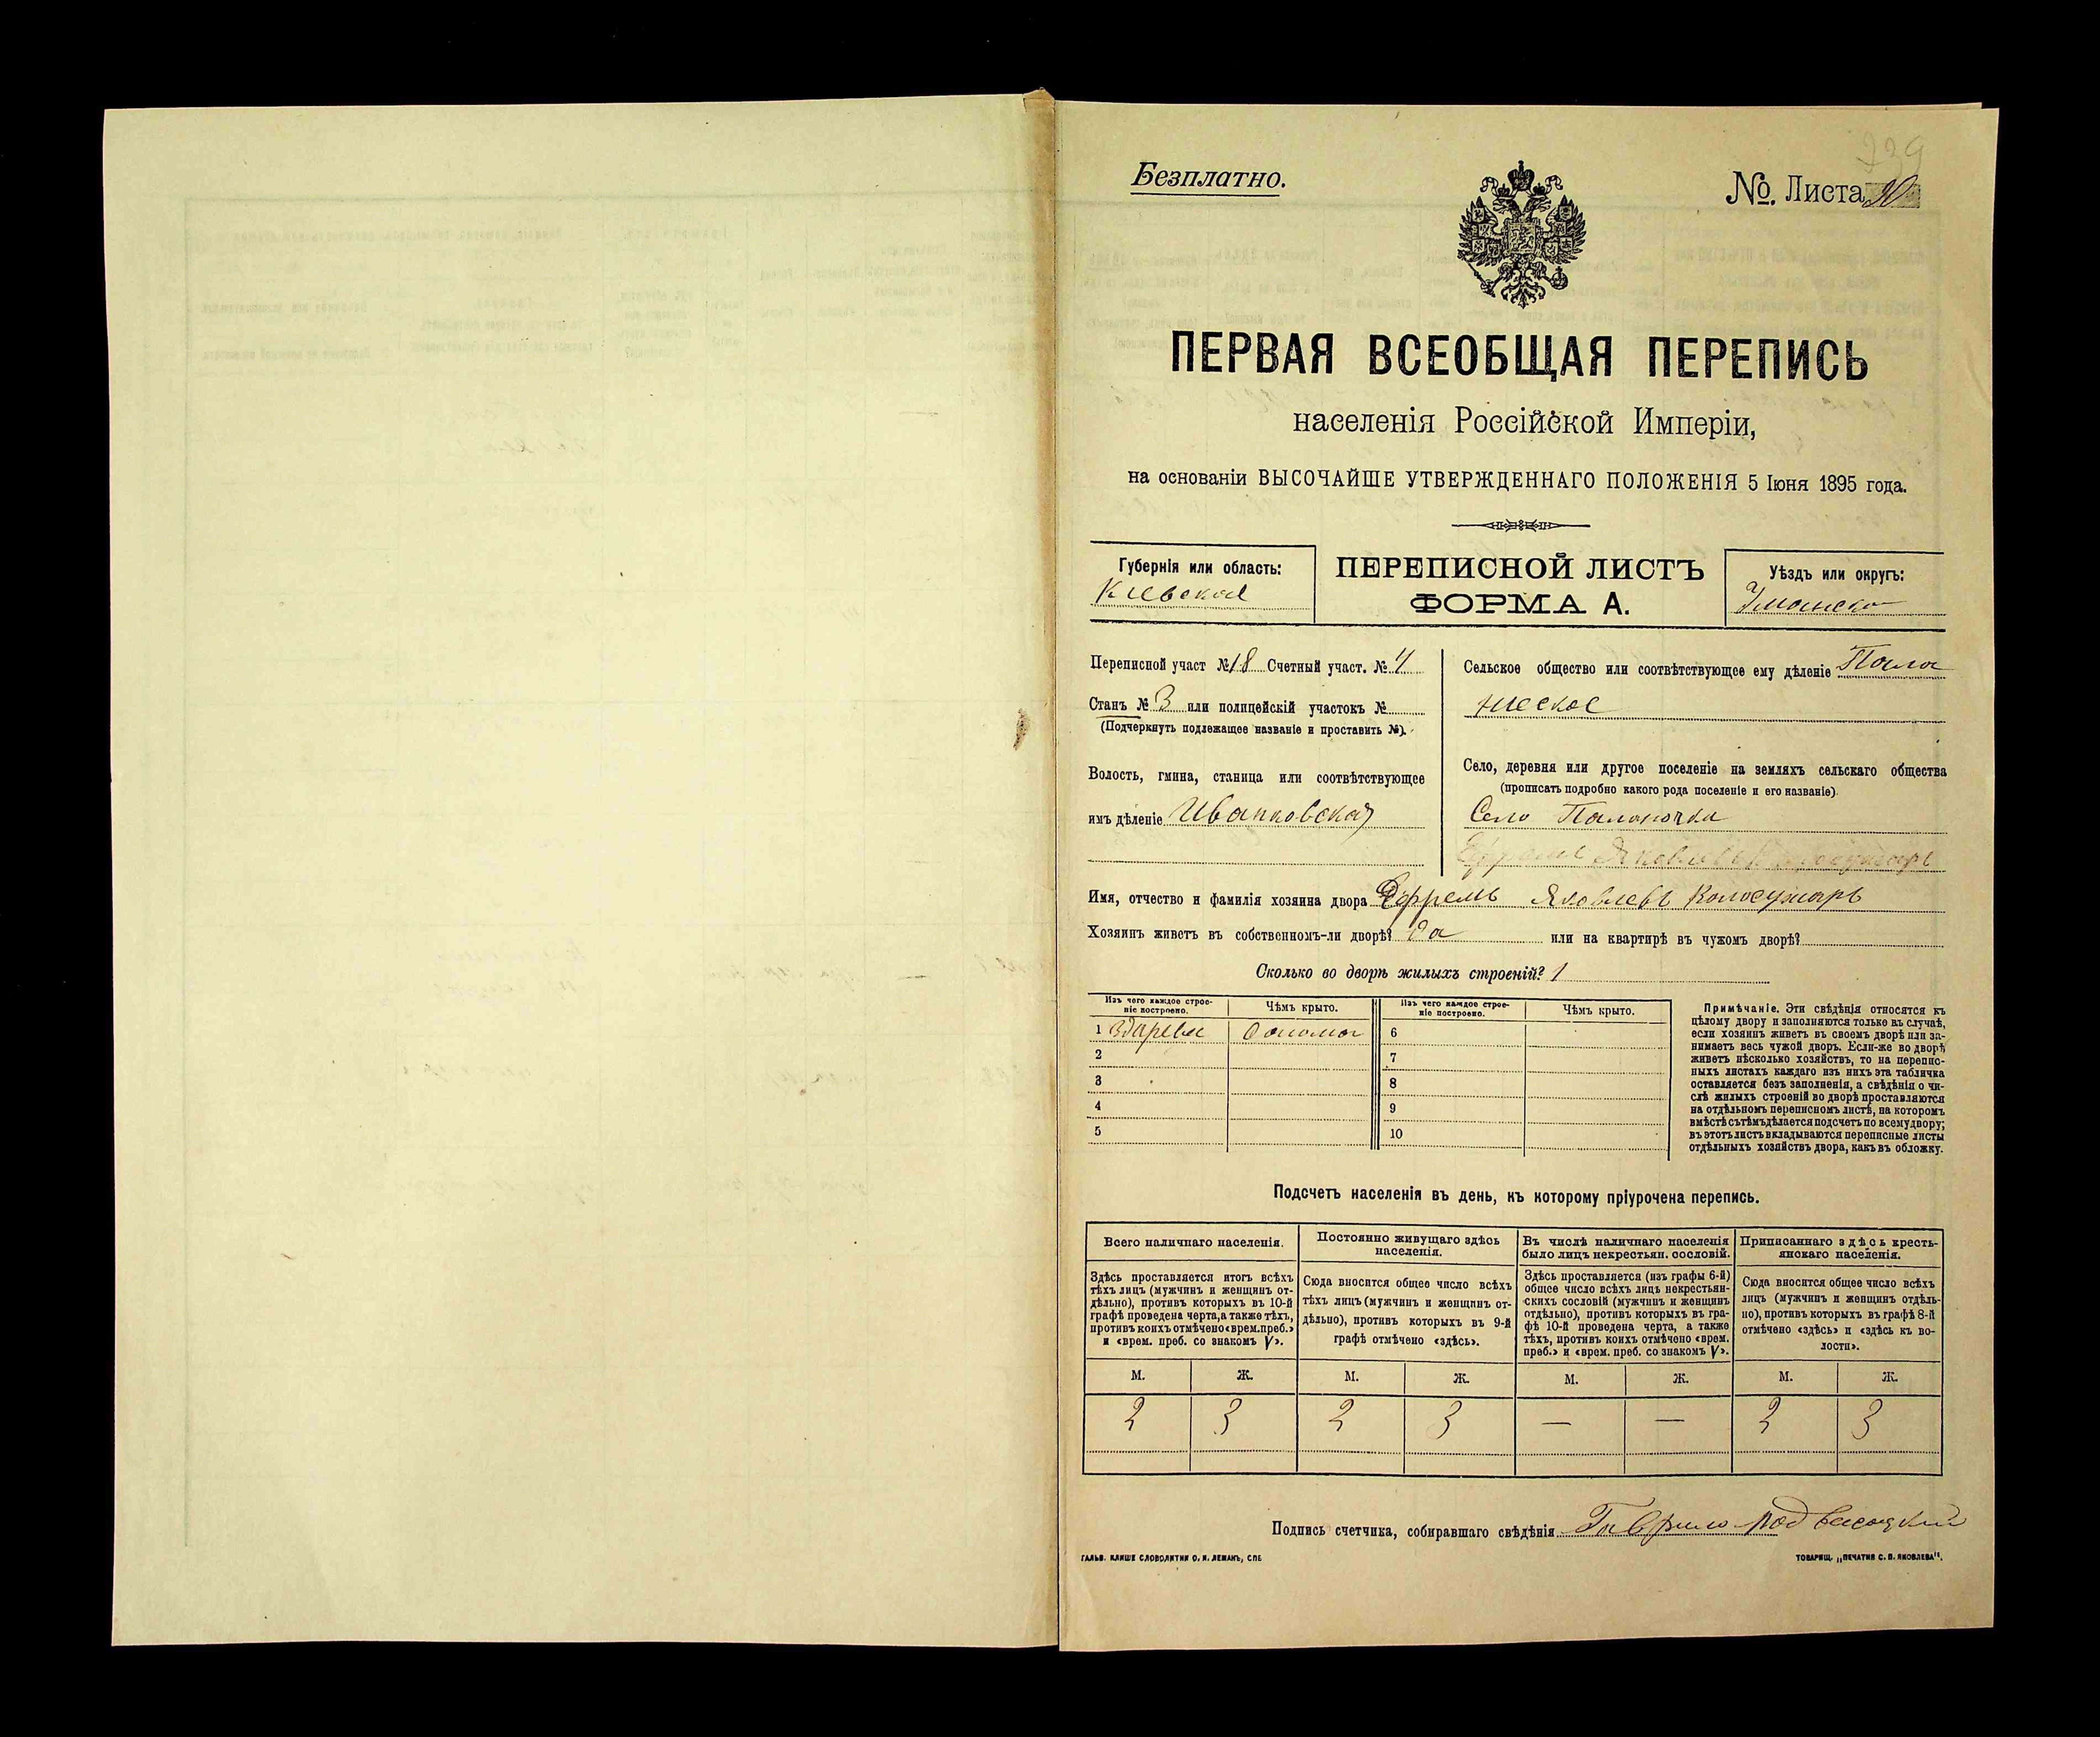 239
Безплатно.
№. Листа 20
ПЕРВАЯ ВСЕОБЩАЯ ПЕРЕПИСЬ
населенія Россійской Имперіи,
на основаніи ВЫСОЧАЙШЕ УТВЕРЖДЕННАГО ПОЛОЖЕНІЯ 5 Іюня 1895 года.
Губернія или область:
Кіевская
ПЕРЕПИСНОЙ ЛИСТЪ
ФОРМА А.
Уѣздъ или округъ:
Уманско
Переписной участ № 18 Счетный участ. № 4
Станъ № 3 или полицейскій участокъ №
(Подчеркнуть подлежащее названіе и проставить №).
Волость, гмина, станица или соотвѣтствующее
имъ дѣленіе Иваньковская
Сельское общество или соотвѣтствующее ему дѣленіе Пало
ническое
Село, деревня или другое поселеніе на земляхъ сельскаго общества
(прописать подробно какого рода поселеніе и его названіе)
Село Паланочка
Ефремъ Яковлевъ
Имя, отчество и фамилія хозяина двора Ефремъ Яковлевъ Колосужаръ
Хозяинъ живетъ въ собственномъ-ли дворѣ? Да или на квартирѣ въ чужомъ дворѣ?
Сколько во дворѣ жилыхъ строеній? 1
Изъ чего каждое строе-
ніе построено.
Чѣмъ крыто.
Изъ чего каждое строе-
ніе построено.
Чѣмъ крыто.
1 Здарева Соломой 6
2 7
3 8
4 9
5 10
Примѣчаніе. Эти свѣдѣнія относятся къ
цѣлому двору и заполняются только въ случаѣ,
если хозяинъ живетъ въ своемъ дворѣ или за-
нимаетъ весь чужой дворъ. Если-же во дворѣ
живетъ нѣсколько хозяйствъ, то на перепис-
ныхъ листахъ каждаго изъ нихъ эта табличка
оставляется безъ заполненія, а свѣдѣнія о чи-
слѣ жилыхъ строеній во дворѣ проставляются
на отдѣльномъ переписномъ листѣ, на которомъ
вмѣстѣ съ тѣмъ дѣлается подсчетъ по всему двору;
въ этотъ листъ вкладываются переписные листы
отдѣльныхъ хозяйствъ двора, какъ въ обложку.
Подсчетъ населенія въ день, къ которому пріурочена перепись.
Всего наличнаго населенія.
Здѣсь проставляется итогъ всѣхъ
тѣхъ лицъ (мужчинъ и женщинъ от-
дѣльно), противъ которыхъ въ 10-й
графѣ проведена черта, а также тѣхъ,
противъ коихъ отмѣчено «врем. преб.»
и «врем. преб. со знакомъ V».
Постоянно живущаго здѣсь
населенія.
Сюда вносится общее число всѣхъ
тѣхъ лицъ (мужчинъ и женщинъ от-
дѣльно), противъ которыхъ въ 9-й
графѣ отмѣчено «здѣсь».
Въ числѣ наличнаго населенія
было лицъ некрестьян. сословій.
Здѣсь проставляется (изъ графы 6-й)
общее число всѣхъ лицъ некрестьян-
скихъ сословій (мужчинъ и женщинъ
отдѣльно), противъ которыхъ въ гра-
фѣ 10-й проведена черта, а также
тѣхъ, противъ коихъ отмѣчено «врем.
преб.» и «врем. преб. со знакомъ V».
Приписаннаго здѣсь кресть-
янскаго населенія.
Сюда вносится общее число всѣхъ
лицъ (мужчинъ и женщинъ отдѣль-
но), противъ которыхъ въ графѣ 8-й
отмѣчено «здѣсь» и «здѣсь къ во-
лости».
М. Ж. М. Ж. М. Ж. М. Ж.
2 3 2 3 — — 2 3
Подпись счетчика, собиравшаго свѣдѣнія Гаврило Подвысоцкий
ГАЛЬВ. КЛИШЕ СЛОВОЛИТНИ О. И. ЛЕМАНЪ, СПБ
ТОВАРИЩ. „ПЕЧАТНЯ С. П. ЯКОВЛЕВА“.